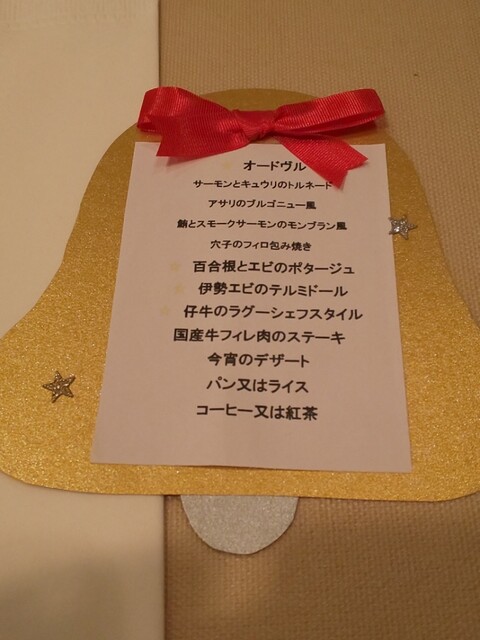 オードヴル
サーモンとキュウリのトルネード
アサリのブルゴニュー風
鮪とスモークサーモンのモンブラン風
穴子のフィロ包み焼き
百合根とエビのポタージュ
伊勢エビのテルミドール
仔牛のラグーシェフスタイル
国産牛フィレ肉のステーキ
今宵のデザート
パン又はライス
コーヒー又は紅茶